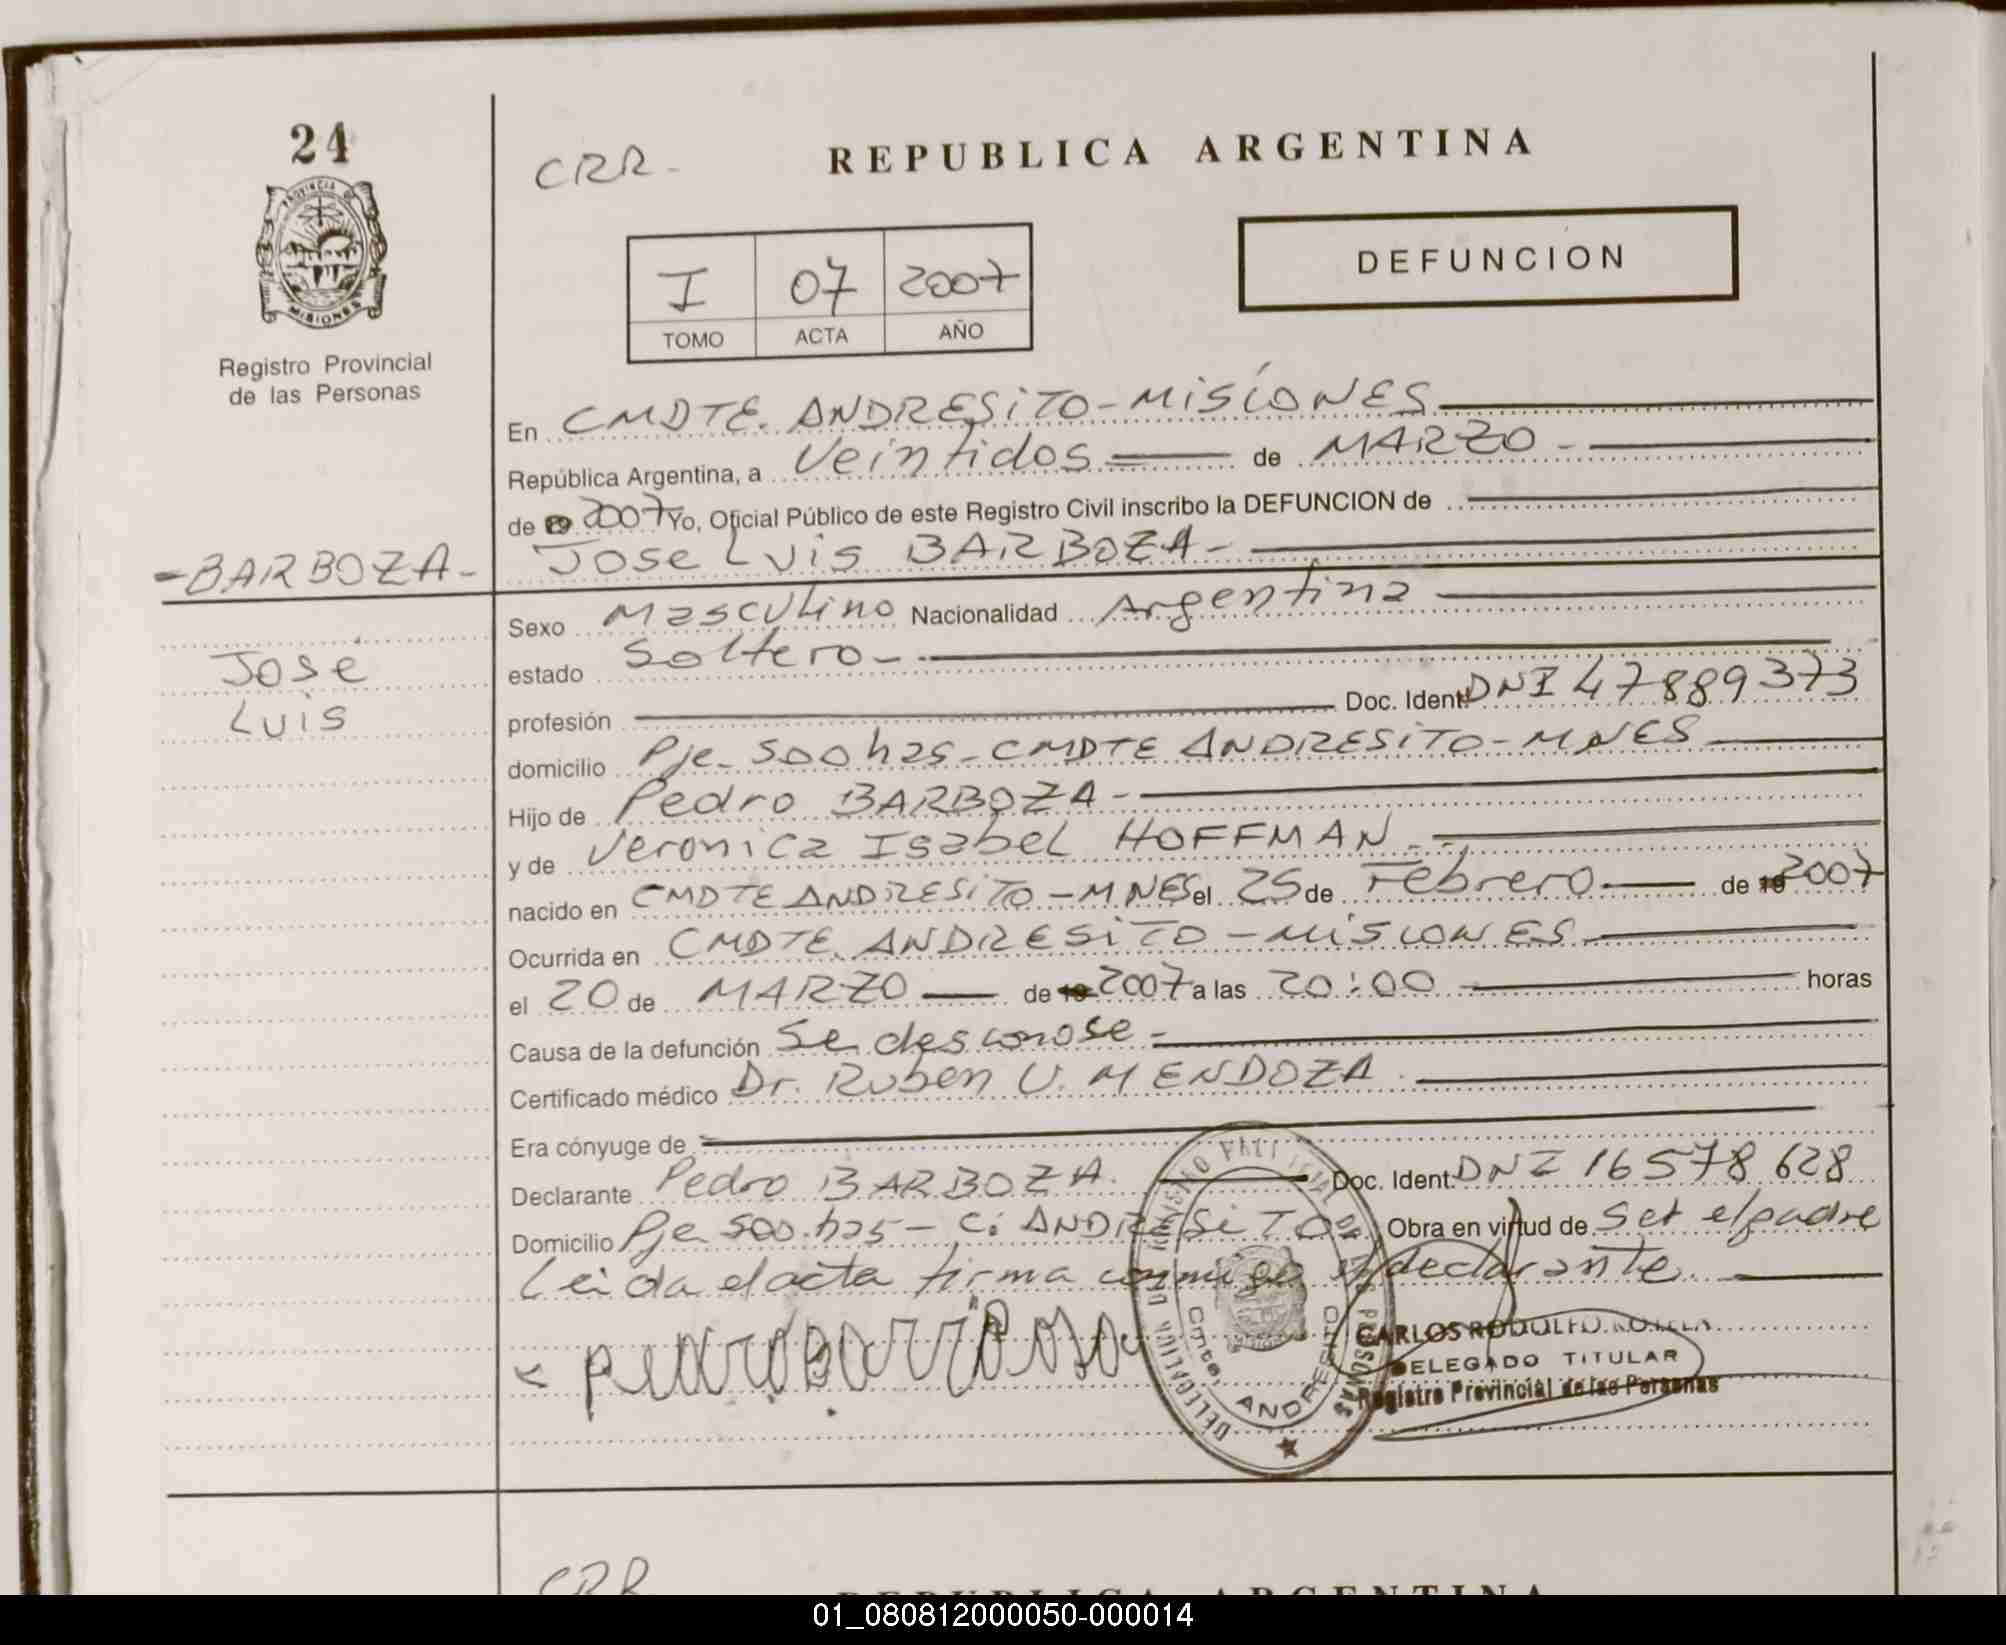 24
CRR-
REPUBLICA ARGENTINA
PROVINCIA DE
MISIONES
Registro Provincial
de las Personas
I 07 2007
TOMO ACTA AÑO
DEFUNCION
En CMDTE. ANDRESITO - MISIONES
República Argentina, a Veintidos de MARZO -
de 19 2007 Yo, Oficial Público de este Registro Civil inscribo la DEFUNCION de
- BARBOZA - Jose Luis BARBOZA -
Sexo Masculino Nacionalidad Argentina
José
Luis
estado Soltero -
profesión Doc. Ident. DNI 47889373
domicilio Pje. 500 has - CMDTE ANDRESITO - MNES
Hijo de Pedro BARBOZA -
y de Veronica Isabel HOFFMAN. -
nacido en CMDTE ANDRESITO - MNES el 25 de Febrero de 19 2007
Ocurrida en CMDTE. ANDRESITO - MISIONES
el 20 de MARZO de 19 2007 a las 20:00 horas
Causa de la defunción Se desconose -
Certificado médico Dr. Ruben U. MENDOZA
Era cónyuge de
Declarante Pedro BARBOZA. Doc. Ident: DNI 16578628
Domicilio Pje 500 has - C: ANDRESITO Obra en virtud de Ser el padre
Leida el acta firma conmigo el declarante
CARLOS RODOLFO
DELEGADO TITULAR
Registro Provincial de las Personas
DELEGACION
DE LAS PERSONAS
Cmte. ANDRESITO
CRR
REPUBLICA ARGENTINA
01_080812000050-000014